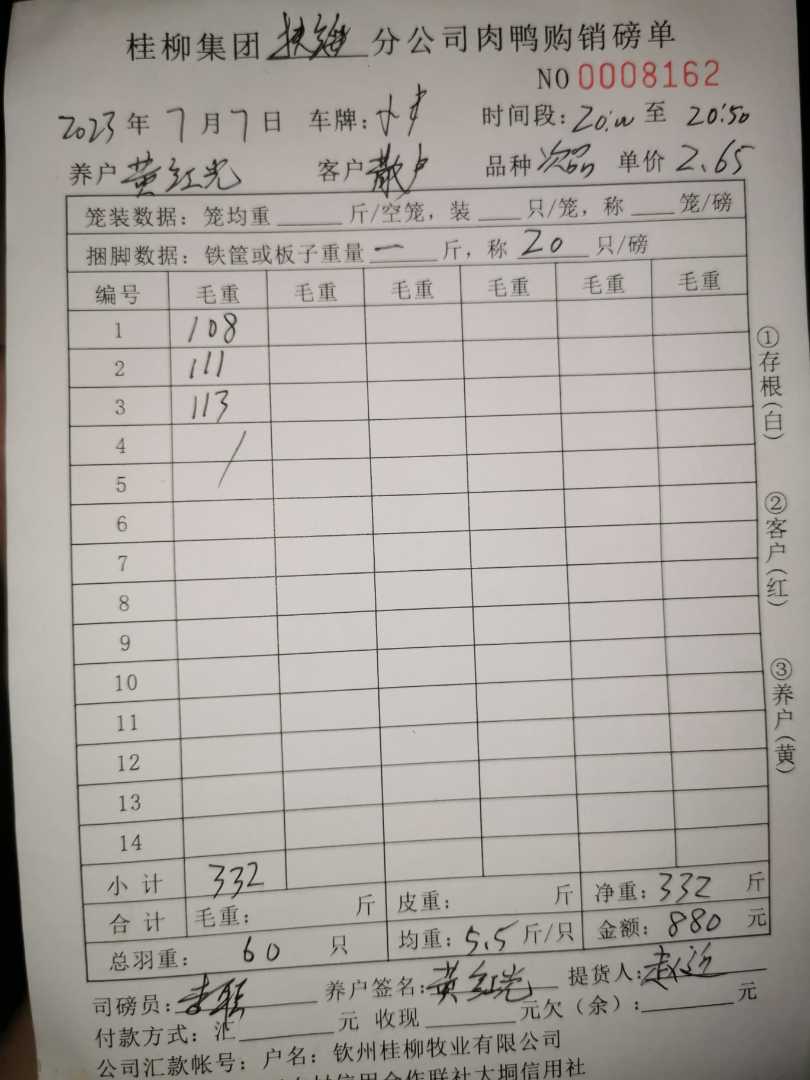 桂柳集团 分公司肉鸭购销磅单
NO 0008162
2023年7月7日 车牌:小车 时间段:20:00至20:50
养户 黄红光 客户 散户 品种 次品 单价 2.65
笼装数据:笼均重____斤/空笼,装____只/笼,称____笼/磅
捆脚数据:铁筐或板子重量 一 斤,称 20 只/磅
编号 毛重 毛重 毛重 毛重 毛重 毛重
1 108
2 111
3 113
4 /
5
6
7
8
9
10
11
12
13
14
小计 332
合计 毛重: 斤 皮重: 斤 净重:332 斤
总羽重: 60 只 均重:5.5斤/只 金额:880元
司磅员: 养户签名:黄红光 提货人:
付款方式:汇____元 收现____元欠(余):____元
公司汇款帐号:户名:钦州桂柳牧业有限公司
信用合作联社大垌信用社
①存根(白)
②客户(红)
③养户(黄)